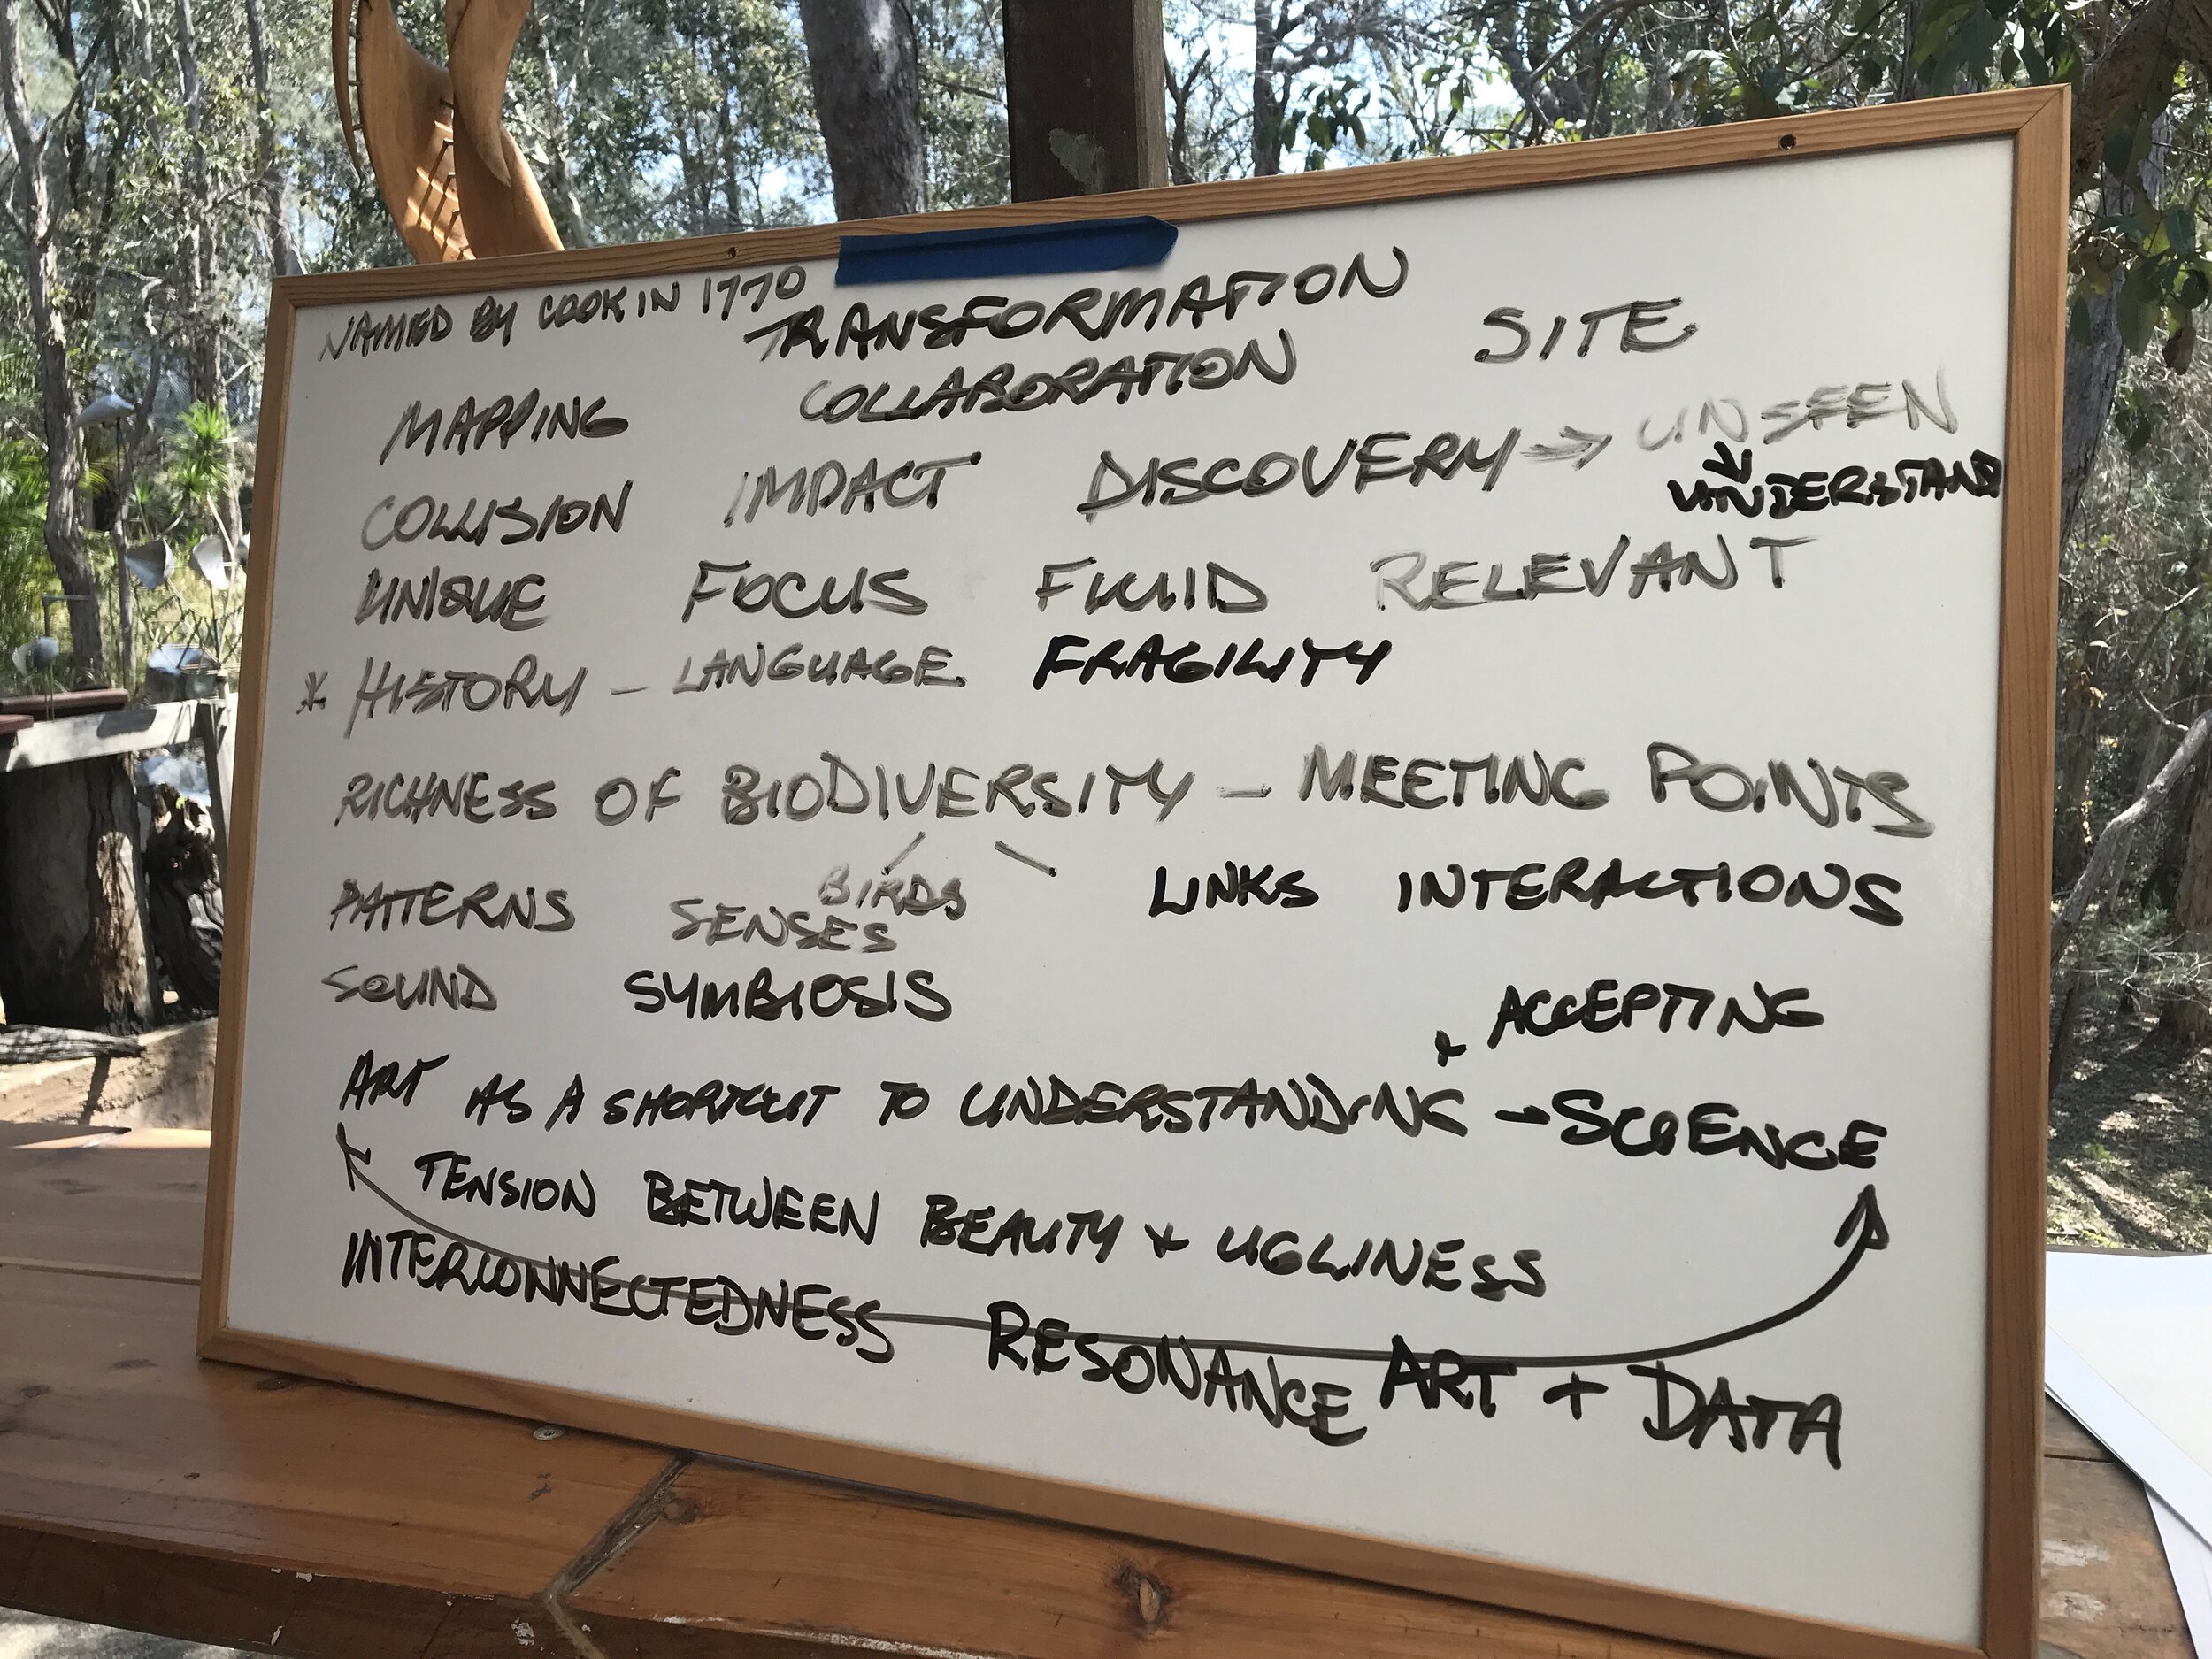 NAMED BY COOK IN 1770
TRANSFORMATION
COLLABORATION SITE
MAPPING
COLLISION IMPACT DISCOVERY → UNSEEN
UNDERSTAND
UNIQUE FOCUS FLUID RELEVANT
* HISTORY - LANGUAGE FRAGILITY
RICHNESS OF BIODIVERSITY - MEETING POINTS
BIRDS
PATTERNS SENSES LINKS INTERACTIONS
SOUND SYMBIOSIS
& ACCEPTING
ART AS A SHORTCUT TO UNDERSTANDING - SCIENCE
TENSION BETWEEN BEAUTY & UGLINESS
INTERCONNECTEDNESS RESONANCE ART + DATA